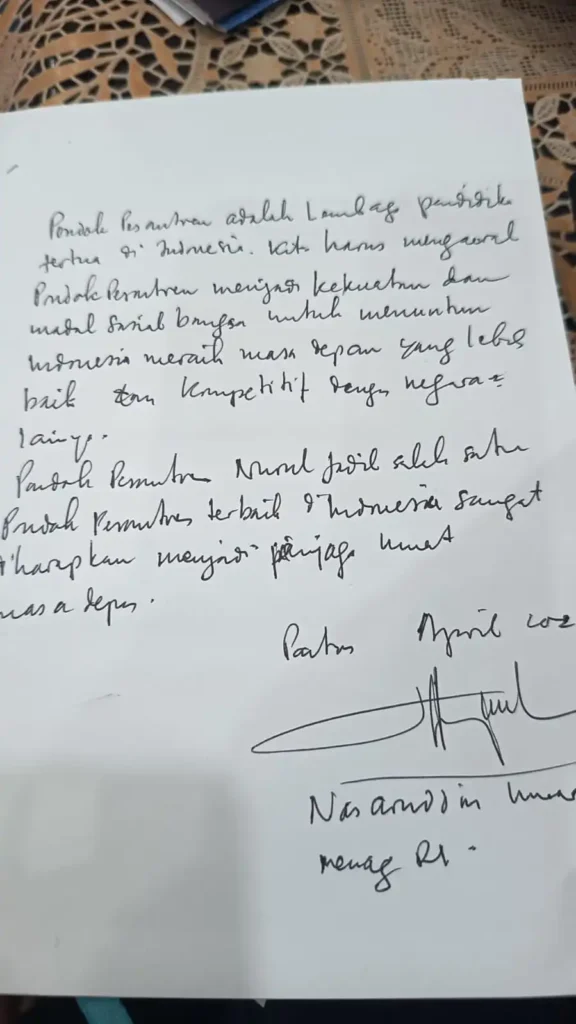 Pondok Pesantren adalah Lembaga pendidika
tertua di Indonesia. Kita harus mengawal
Pondok Pesantren menjadi kekuatan dan
modal sosial bangsa untuk menuntun
Indonesia meraih masa depan yang lebih
baik dan kompetitif dengan negara2
lainya.
Pondok Pesantren Nurul Jadil salah satu
Pondok Pesantren terbaik di Indonesia sangat
diharapkan menjadi penjaga umat
masa depan.
April 202
Nasaruddin Umar
Menag RI.